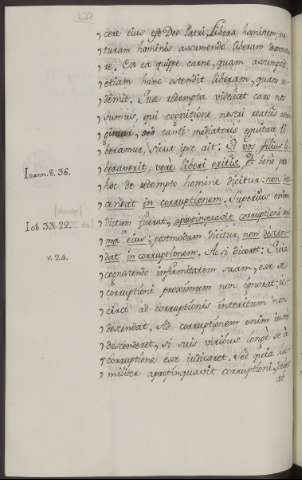 cere eius est Deo Patri. Libera hominem, na
turam hominis assumendo liberam
re. Ea ea quippe carne, quam assumpsit
etiam hanc ostendit liberam, quam re
demit. Quae redempta videlicet caro nos
sumus, qui cognitione nostri reatus
sed tanti mediatoris
beramur, sicut ipse ait: Si vos filius li
beraverit, vere liberi eritis. Et bene per
hoc de redempto homine dicitur: non de
scendat in corruptionem. Superius enim
dictum fuerat, appropinquavit corruptioni
ma eius: postmodum dicitur, non descen
dat in corruptionem. Ac si dicat: Quia
cognoscendo infirmitatem suam, esse se
corruptioni proximum non ignorat: id
circo ad corruptionis interitum non
descendat. Ad corruptionem enim iuste
descenderet, si suis viribus longe se a
corruptione esse iudicaret. Sed quia hu
militer appropinquavit corruptioni,
Ioann. 8. 36.
Iob 33. 22.
v. 24.